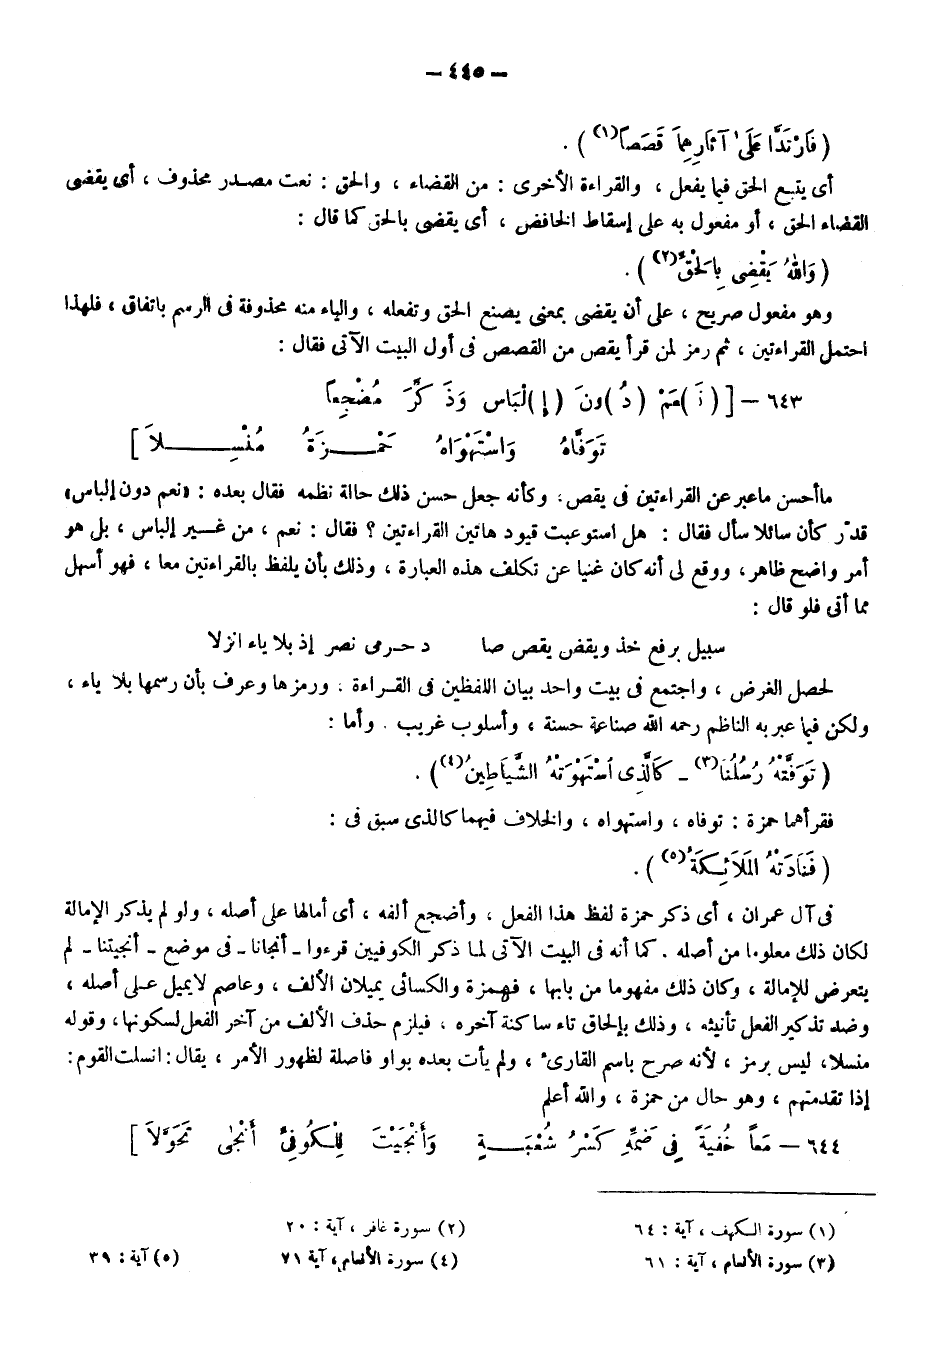 — ٤٤٥ —
( فَارْتَدَّا عَلَىٰ آثَارِهِمَا قَصَصاً(١) ) .
أى يتبع الحق فيما يفعل ، والقراءة الأخرى : من القضاء ، والحق : نعت مصدر محذوف ، أى يقضى
القضاء الحق ، أو مفعول به على إسقاط الخافض ، أى يقضى بالحق كما قال :
( وَاللهُ يَقْضِى بِالْحَقِّ(٢) ) .
وهو مفعول صريح ، على أن يقضى بمعنى يصنع الحق وتفعله ، والياء منه محذوفة فى الرسم باتفاق ، فلهذا
احتمل القراءتين ، ثم رمز لمن قرأ يقص من القصص فى أول البيت الآتى فقال :
٦٤٣ — [ (نَ)عَمْ (دُ)ونَ (إِ)لْبَاسٍ وَذَكَّرَ مُضْجِعاً
تَوَفَّاهُ وَاسْتَهْوَاهُ حَمْـزَةُ مُنْسِـلاَ ]
ماأحسن ماعبر عن القراءتين فى يقص ، وكأنه جعل حسن ذلك حالة نظمه فقال بعده : «نعم دون إلباس»
قدّر كأن سائلا سأل فقال : هل استوعبت قيود هاتين القراءتين ؟ فقال : نعم ، من غـير إلباس ، بل هو
أمر واضح ظاهر ، ووقع لى أنه كان غنيا عن تكلف هذه العبارة ، وذلك بأن يلفظ بالقراءتين معا ، فهو أسهل
مما أتى فلو قال :
سبيل برفع خذ ويقض يقص صا د حـرمى نصر إذ بلا ياء انزلا
لحصل الغرض ، واجتمع فى بيت واحد بيان اللفظين فى القـراءة . ورمزها وعرف بأن رسمها بلا ياء ،
ولكن فيما عبر به الناظم رحمه الله صناعة حسنة ، وأسلوب غريب . وأما :
( تَوَفَّتْهُ رُسُلُنَا(٣) ـ كَالَّذِى اسْتَهْوَتْهُ الشَّيَاطِينُ(٤) ) .
فقرأهما حمزة : توفاه ، واستهواه ، والخلاف فيهما كالذى سبق فى :
( فَنَادَتْهُ المَلَائِكَةُ(٥) ) .
فى آل عمران ، أى ذكر حمزة لفظ هذا الفعل ، وأضجع ألفه ، أى أمالها على أصله ، ولو لم يذكر الإمالة
لكان ذلك معلوما من أصله . كما أنه فى البيت الآتى لما ذكر الكوفيين قرءوا ـ أنجانا ـ فى موضع ـ أنجيتنا ـ لم
يتعرض للإمالة ، وكان ذلك مفهوما من بابها ، فهمزة والكسائى يميلان الألف ، وعاصم لايميل عـلى أصله ،
وضد تذكير الفعل تأنيثه ، وذلك بإلحاق تاء ساكنة آخره ، فيلزم حذف الألف من آخر الفعل لسكونها ، وقوله
منسلا ، ليس برمز ، لأنه صرح باسم القارىء ، ولم يأت بعده بواو فاصلة لظهور الأمر ، يقال : انسلت القوم :
إذا تقدمتهم ، وهو حال من حمزة ، والله أعلم
٦٤٤ — مَعاً خُفْيَةً فِى ضَمِّهِ كَسْرُ شُعْبَـةٍ وَأَنْجَيْتَ لِلْكُوفِىِّ أَنْجَى تَحَوَّلاَ ]
(١) سورة الـكهف ، آية : ٦٤ (٢) سورة غافر ، آية : ٢٠
(٣) سورة الأنعام ، آية : ٦١ (٤) سورة الأنعام ، آية ٧١ (٥) آية : ٣٩